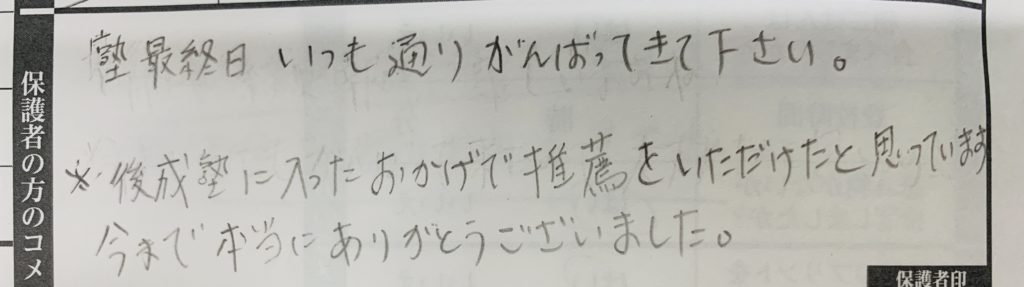 保護者の方のコメ
塾最終日 いつも通りがんばってきて下さい。
※俊成塾に入ったおかげで推薦をいただけたと思っています
今まで本当にありがとうございました。
保護者印